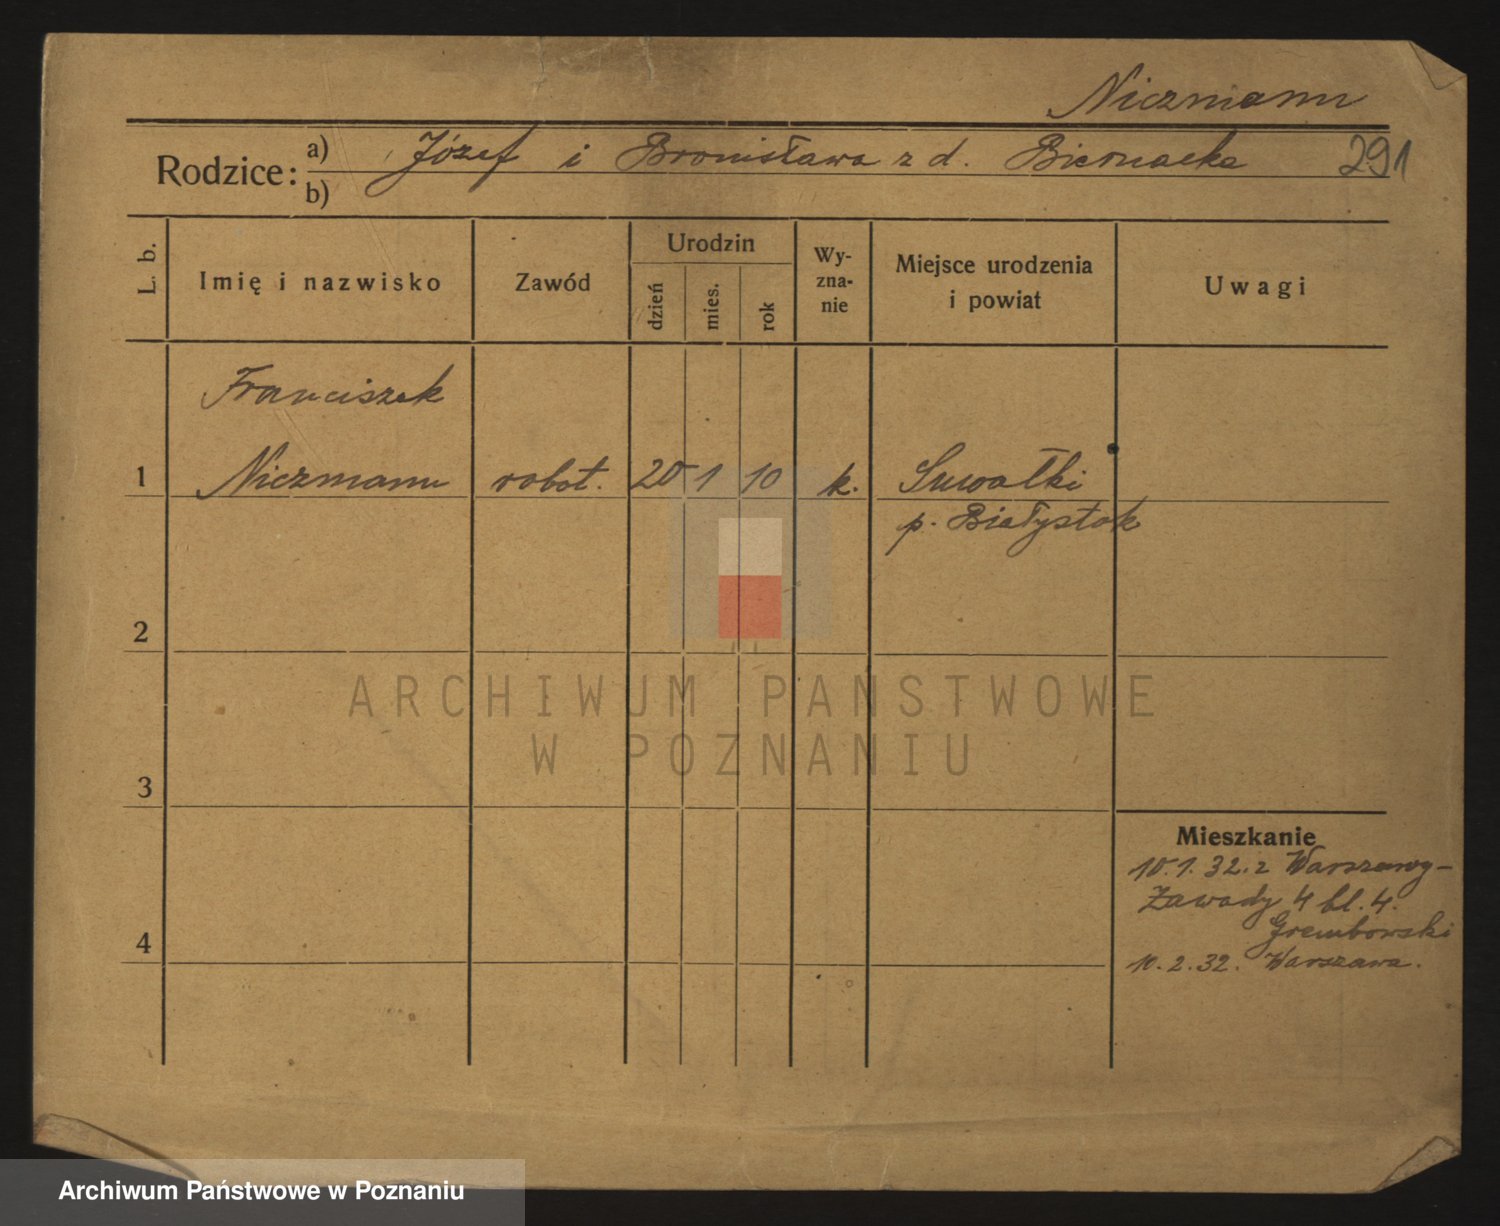 Niczmann
Rodzice: a) Józef i Bronisława z d. Biernacka 291
b)
L. b.
Imię i nazwisko
Zawód
Urodzin
dzień
mies.
rok
Wy-
zna-
nie
Miejsce urodzenia
i powiat
Uwagi
Franciszek
1 Niczmann robot. 20 1 10 k. Suwałki
p. Białystok
2
3
4
Mieszkanie
10.1.32. z Warszawy-
Zawady 4 bl. 4.
Grembowski
10.2.32. Warszawa.
ARCHIWUM PAŃSTWOWE
W POZNANIU
Archiwum Państwowe w Poznaniu